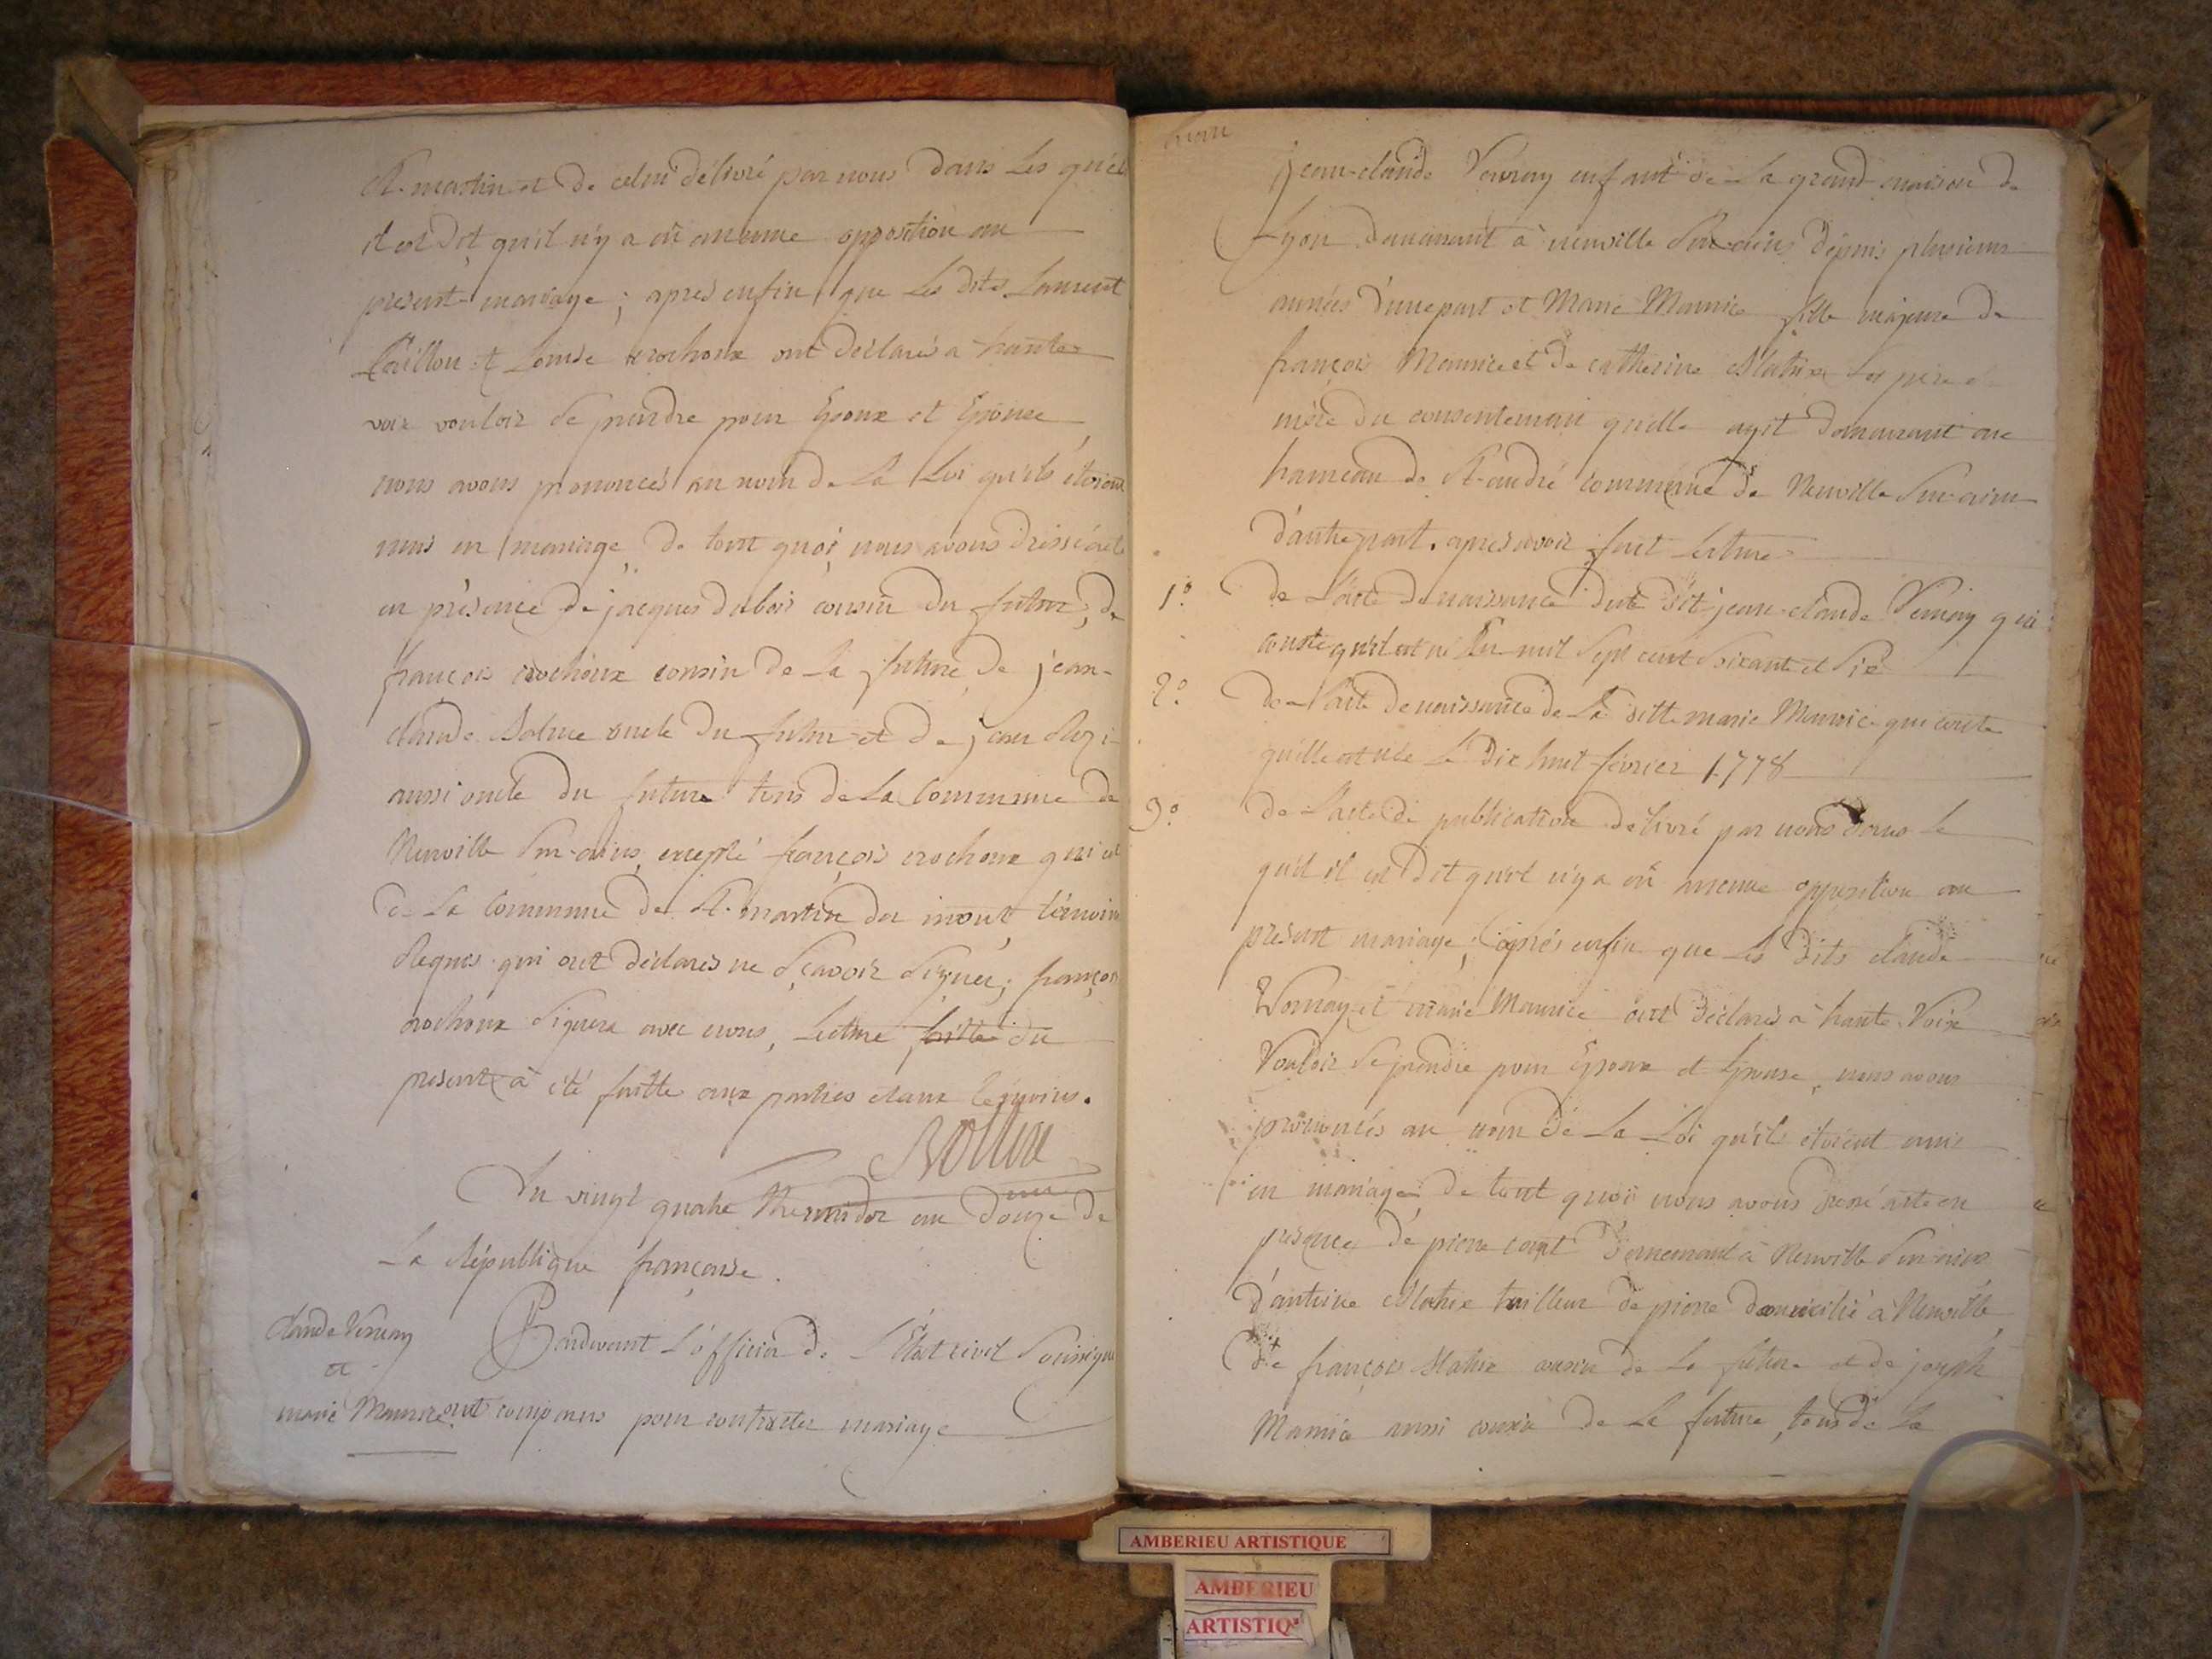 St. martin et de celui délivré par nous dans les quels
il est dit qu'il n'y a eû aucune opposition au
present mariage ; apres enfin que Les dits Laurent
et Louise crochoux ont declarés a haute
voix vouloir se prendre pour Epoux et Epouse
nous avons prononcés au nom de La Loi qu'ils étoient
unis en mariage, de tout quoi nous avons dressé acte
en présence de jacques dubois cousin du futur, de
françois crochoux cousin de La future, de jean-
claude oncle du futur et de jean
aussi oncle du future tous de La Commune de
Neuville sur-ains, excepté françois crochoux qui est
de La Commune de St. martin du mont, témoins
Requis qui ont déclarés ne sçavoir signer ; françois
crochoux signera avec nous, Lecture faitte du
present a été faitte aux parties et aux témoins.
Du vingt quatre thermidor an douze de
La République françoise.
claude Vernay
et
marie Maurice
Pardevant L'officier de L'État civil soussigné
ont comparus pour contracter mariage
jean-claude Vernay enfant de La grand maison de
Lyon demeurant à neuville sur-ains depuis plusieurs
années d'une part et Marie Maurice fille majeure de
françois Maurice et de catherine ses pere et
mère du consentement qu'elle agit demeurant au
hameau de St-andré commune de Neuville sur-ains
d'autre part. apres avoir fait lecture
1.º de L'acte de naissance du dit jean-claude Vernay qui
conste qu'il est né L'an mil sept cent soixante et dix
2.º de L'acte de naissance de La ditte marie Maurice qui conste
qu'elle est née Le dix huit février 1778
3.º de L'acte de publication délivré par nous dans le
quel il est dit qu'il n'y a eû aucune opposition au
present mariage ; après enfin que Les dits claude
Vernay et marie Maurice ont déclarés à haute Voix
Vouloir se prendre pour Epoux et Epouse, nous avons
prononcés au nom de La Loi qu'ils étoient unis
en mariage, de tout quoi nous avons dressé acte en
presence de pierre demeurant à Neuville sur-ains
d'antoine tailleur de pierre domicilié à Neuville
de françois cousin de La future et de joseph
aussi cousin de La future, tous de La
AMBERIEU ARTISTIQUE
AMBERIEU
ARTISTIQ